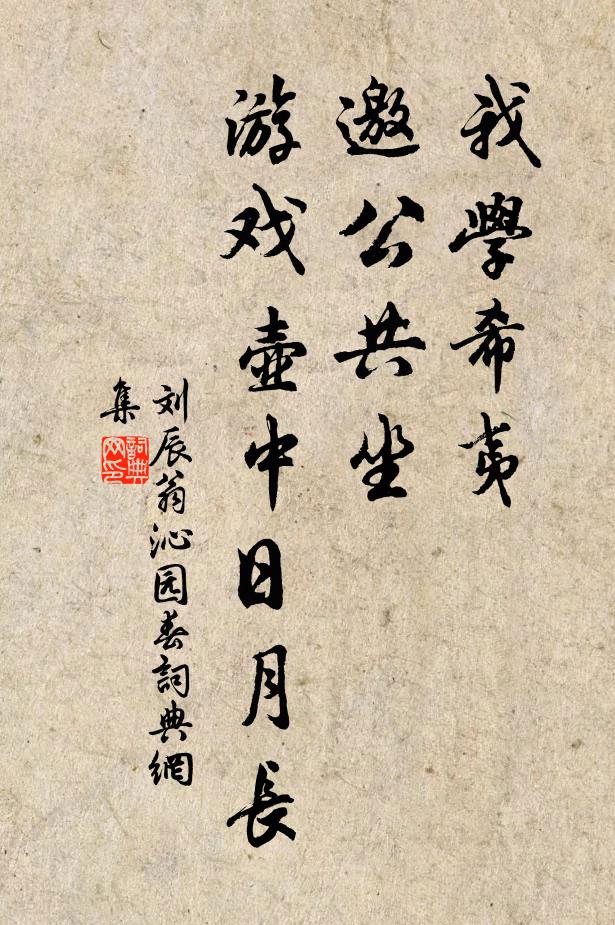 我學希夷
邀公共坐
游戏壺中日月長
刘辰翁沁园春詞典網
集
詞典
网印